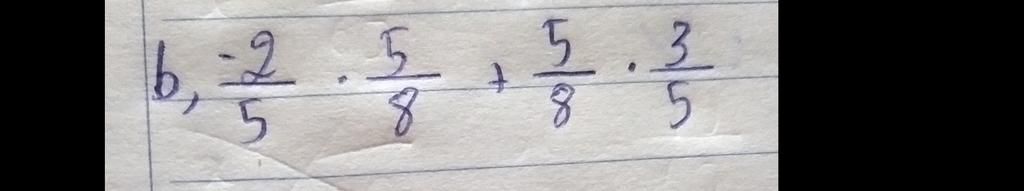 b, \frac{-2}{5} \cdot \frac{5}{8} + \frac{5}{8} \cdot \frac{3}{5}